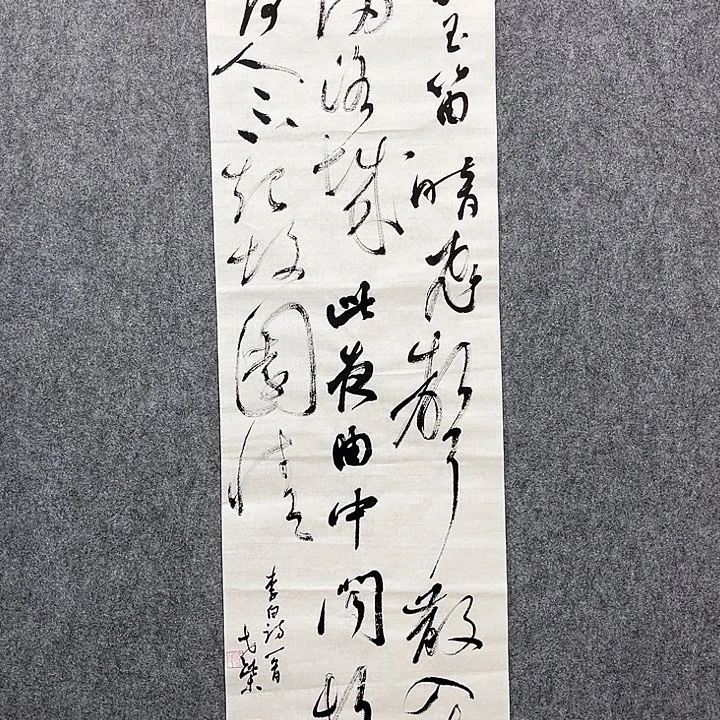 玉笛暗飛聲散入
滿洛城此夜曲中聞折
何人不起故園情
李白诗一首